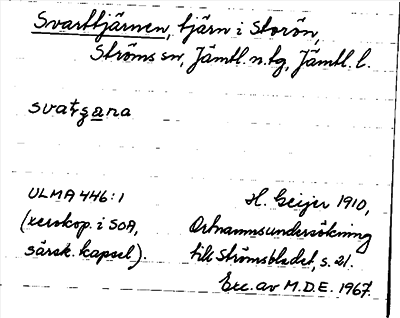 Svarttjärnen, tjärn i Storön,
Ströms sn, Jämtl. n. tg, Jämtl. l.
svatʒana
ULMA 446:1
(xerokop. i SOA,
särsk. kapsel).
H. Geijer 1910,
Ortnamnsundersökning
till Strömsbladet, s. 21.
Exc. av M.D.E. 1967.